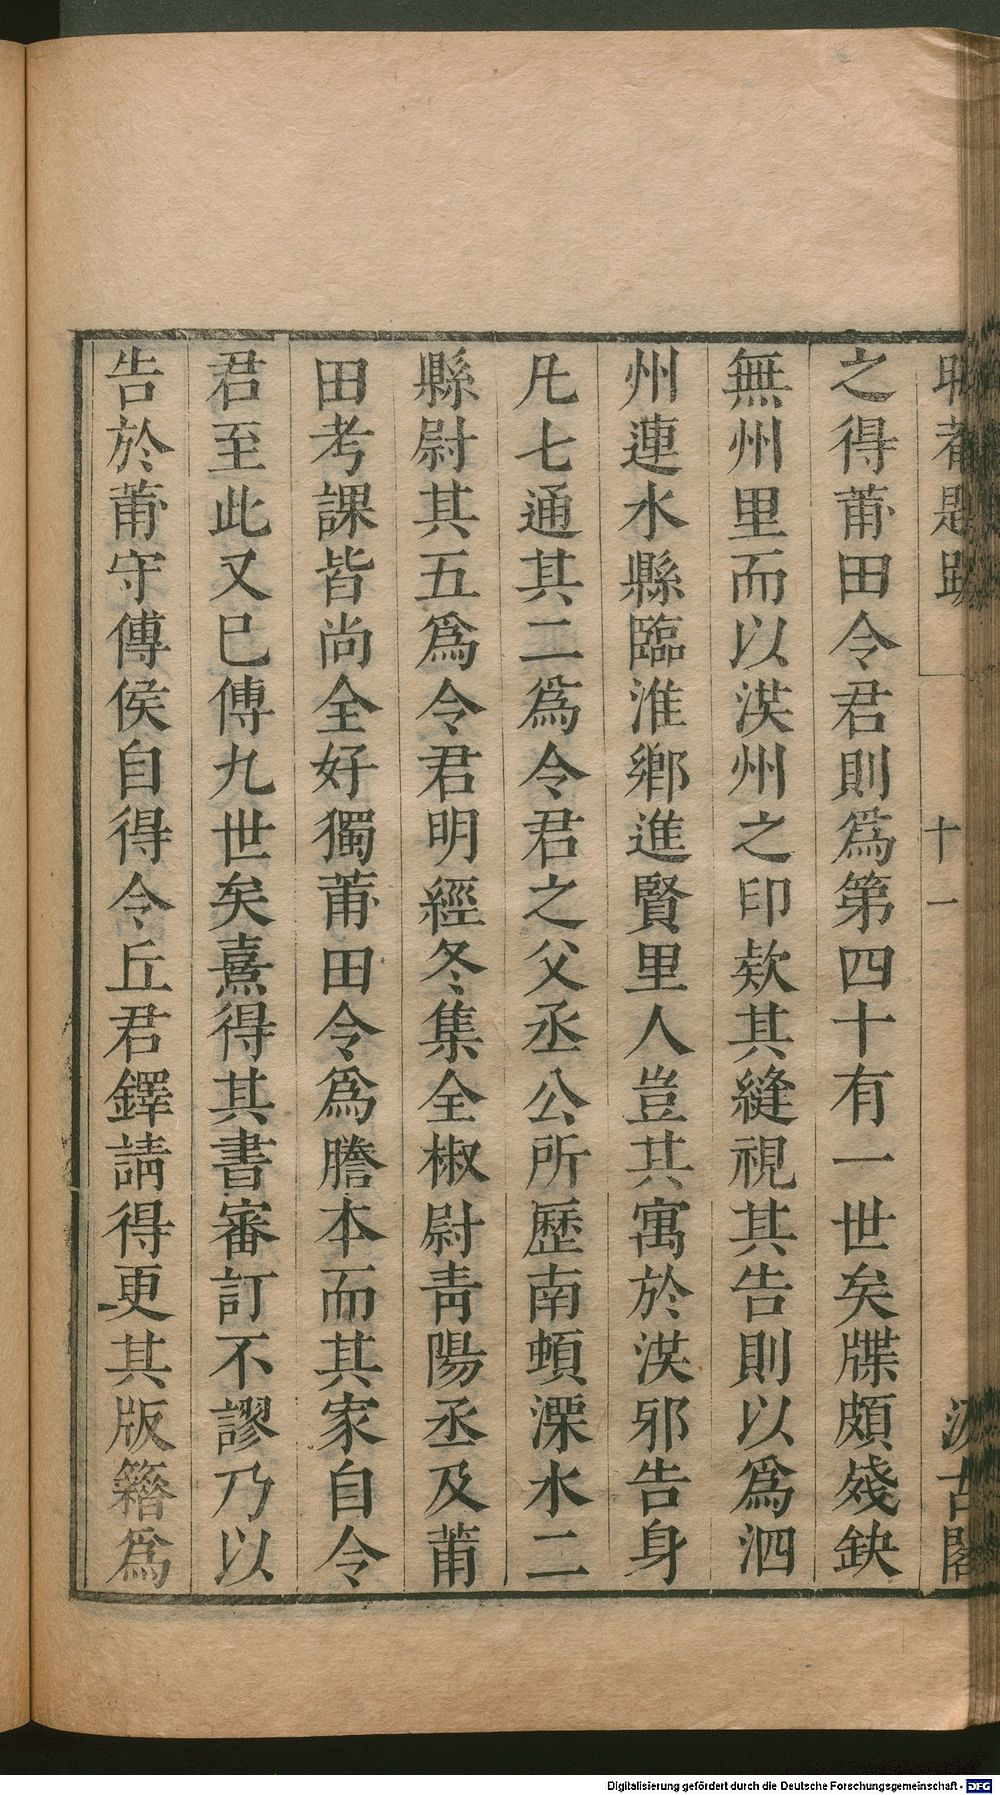 之得莆田令君則爲第四十有一世矣牒頗殘缺
無州里而以漢州之印欵其縫視其告則以爲泗
州連水縣臨淮鄉進賢里人豈其寓於漢邪告身
凡七通其二爲令君之父丞公所歷南頓溧水二
縣尉其五爲令君明經冬集全椒尉靑陽丞及莆
田考課皆尚全好獨莆田令爲謄本而其家自令
君至此又已傳九世矣熹得其書審訂不謬乃以
告於莆守傅侯自得令丘君鐸請得更其版籍爲
十一
汲古閣
Digitalisierung gefördert durch die Deutsche Forschungsgemeinschaft - DFG